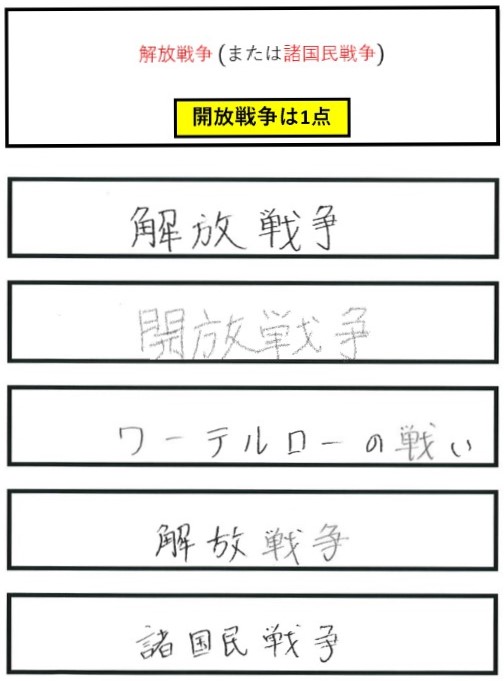 解放戦争(または諸国民戦争)
開放戦争は1点
解放戦争
開放戦争
ワーテルローの戦い
解放戦争
諸国民戦争